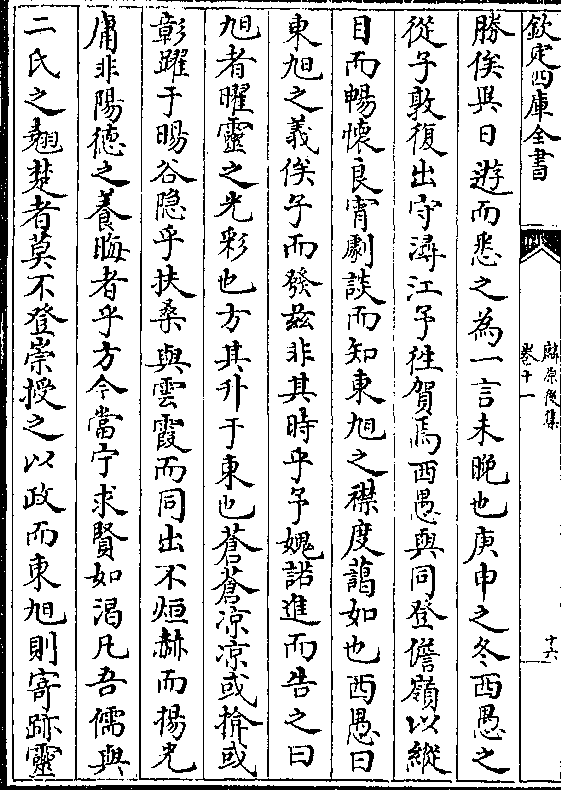 欽定四庫全書
麟原後集
卷十一
十六
勝俟與日遊而悉之為一言未晚也庚申之冬西愚之
從子敦復出守潯江予往賀焉西愚與同登儋嶺以縱
目而暢懷良宵劇談而知東旭之襟度藹如也西愚曰
東旭之義俟子而發兹非其時乎予媿諾進而告之曰
旭者曜靈之光彩也方其升于東也蒼蒼凉凉或揜或
彰躍于暘谷隐乎扶桑與雲霞而同出不烜赫而揚光
庸非陽德之養晦者乎方今當宁求賢如渴凡吾儒與
二氏之翹楚者莫不登崇授之以政而東旭則寄跡靈